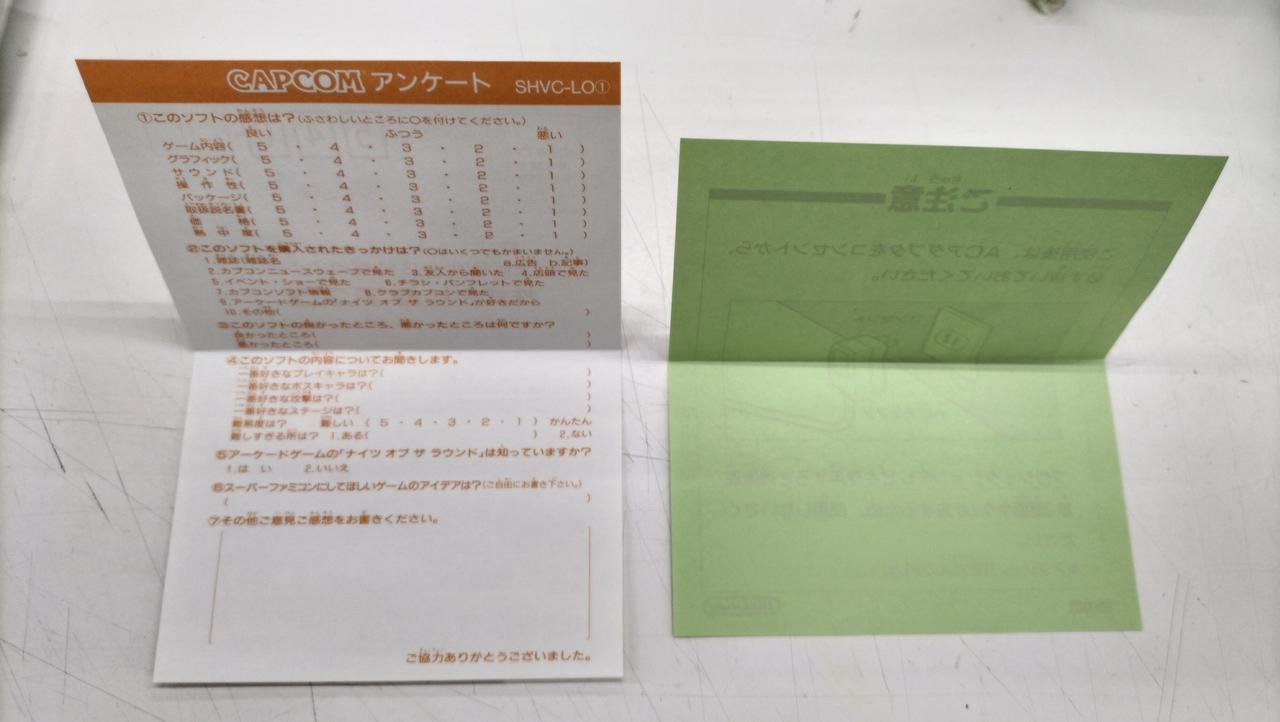 CAPCOM アンケート SHVC-LO①
①このソフトの感想は?(ふさわしいところに○を付けてください。)
良い ふつう 悪い
ゲーム内容( 5 ・ 4 ・ 3 ・ 2 ・ 1 )
グラフィック( 5 ・ 4 ・ 3 ・ 2 ・ 1 )
サウンド( 5 ・ 4 ・ 3 ・ 2 ・ 1 )
操作性( 5 ・ 4 ・ 3 ・ 2 ・ 1 )
パッケージ( 5 ・ 4 ・ 3 ・ 2 ・ 1 )
取扱説明書( 5 ・ 4 ・ 3 ・ 2 ・ 1 )
価格( 5 ・ 4 ・ 3 ・ 2 ・ 1 )
熱中度( 5 ・ 4 ・ 3 ・ 2 ・ 1 )
②このソフトを購入されたきっかけは?(○はいくつでもかまいません。)
1.雑誌(雑誌名 a.広告 b.記事)
2.カプコンニュースウェーブで見た 3.友人から聞いた 4.店頭で見た
5.イベント・ショーで見た 6.チラシ・パンフレットで見た
7.カプコンソフト情報 8.クラブカプコンで見た
9.アーケードゲームの「ナイツ オブ ザ ラウンド」が好きだから
10.その他( )
③このソフトの良かったところ、悪かったところは何ですか?
良かったところ( )
悪かったところ( )
④このソフトの内容についてお聞きします。
一番好きなプレイキャラは?( )
一番好きなボスキャラは?( )
一番好きな攻撃は?( )
一番好きなステージは?( )
難易度は? 難しい ( 5 ・ 4 ・ 3 ・ 2 ・ 1 ) かんたん
難しすぎる所は? 1.ある( ) 2.ない
⑤アーケードゲームの「ナイツ オブ ザ ラウンド」は知っていますか?
1.はい 2.いいえ
⑥スーパーファミコンにしてほしいゲームのアイデアは?(ご自由にお書き下さい。)
( )
⑦その他ご意見ご感想をお書きください。
ご協力ありがとうございました。
ご注意
ご使用後は ACアダプタをコンセントから、
必ず抜いておいてください。
コンセント